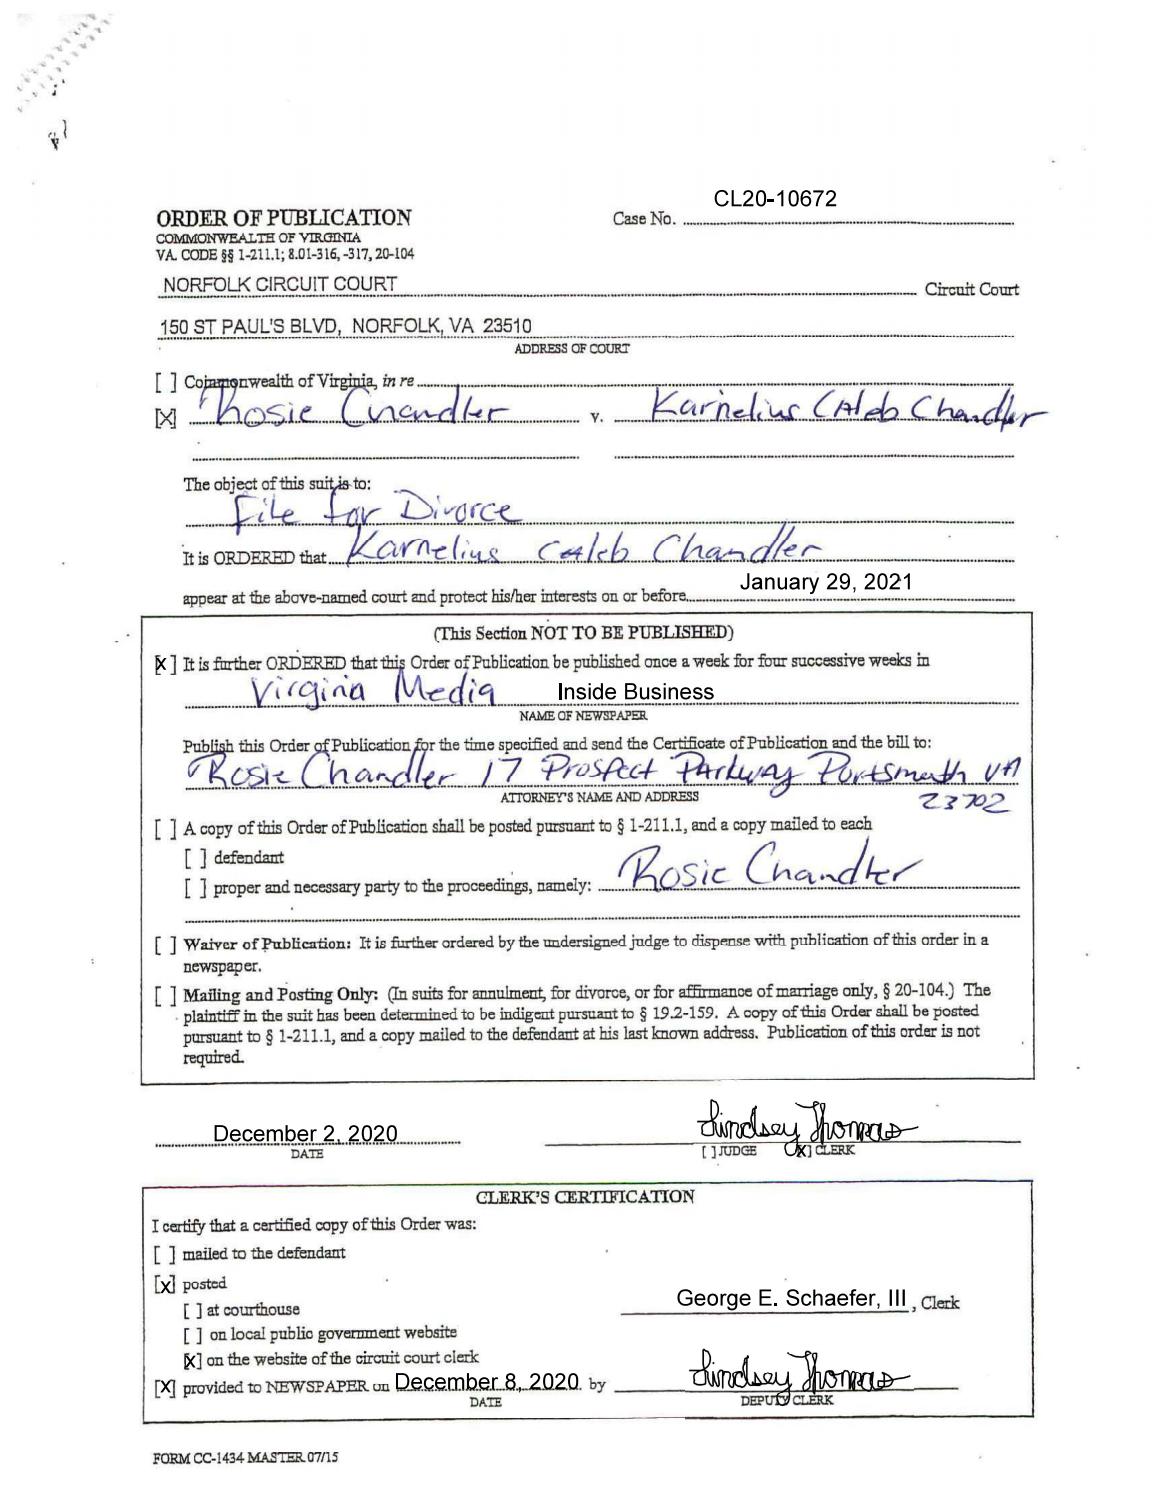 CL20-10672
ORDER OF PUBLICATION Case No.
COMMONWEALTH OF VIRGINIA
VA. CODE §§ 1-211.1; 8.01-316, -317, 20-104
NORFOLK CIRCUIT COURT Circuit Court
150 ST PAUL'S BLVD, NORFOLK, VA 23510
ADDRESS OF COURT
[ ] Commonwealth of Virginia, in re
[X] Rosie Chandler v. Karnelius Caleb Chandler
The object of this suit is to:
File for Divorce
It is ORDERED that Karnelius Caleb Chandler
appear at the above-named court and protect his/her interests on or before January 29, 2021
(This Section NOT TO BE PUBLISHED)
[X] It is further ORDERED that this Order of Publication be published once a week for four successive weeks in
Virginia Media Inside Business
NAME OF NEWSPAPER
Publish this Order of Publication for the time specified and send the Certificate of Publication and the bill to:
Rosie Chandler 17 Prospect Parkway Portsmouth VA
ATTORNEY'S NAME AND ADDRESS 23702
[ ] A copy of this Order of Publication shall be posted pursuant to § 1-211.1, and a copy mailed to each
[ ] defendant
[ ] proper and necessary party to the proceedings, namely: Rosie Chandler
[ ] Waiver of Publication: It is further ordered by the undersigned judge to dispense with publication of this order in a
newspaper.
[ ] Mailing and Posting Only: (In suits for annulment, for divorce, or for affirmance of marriage only, § 20-104.) The
plaintiff in the suit has been determined to be indigent pursuant to § 19.2-159. A copy of this Order shall be posted
pursuant to § 1-211.1, and a copy mailed to the defendant at his last known address. Publication of this order is not
required.
December 2, 2020 Lindsey Thomas
DATE [ ] JUDGE [X] CLERK
CLERK'S CERTIFICATION
I certify that a certified copy of this Order was:
[ ] mailed to the defendant
[X] posted
George E. Schaefer, III, Clerk
[ ] at courthouse
[ ] on local public government website
[X] on the website of the circuit court clerk
[X] provided to NEWSPAPER on December 8, 2020 by Lindsey Thomas
DATE DEPUTY CLERK
FORM CC-1434 MASTER 07/15